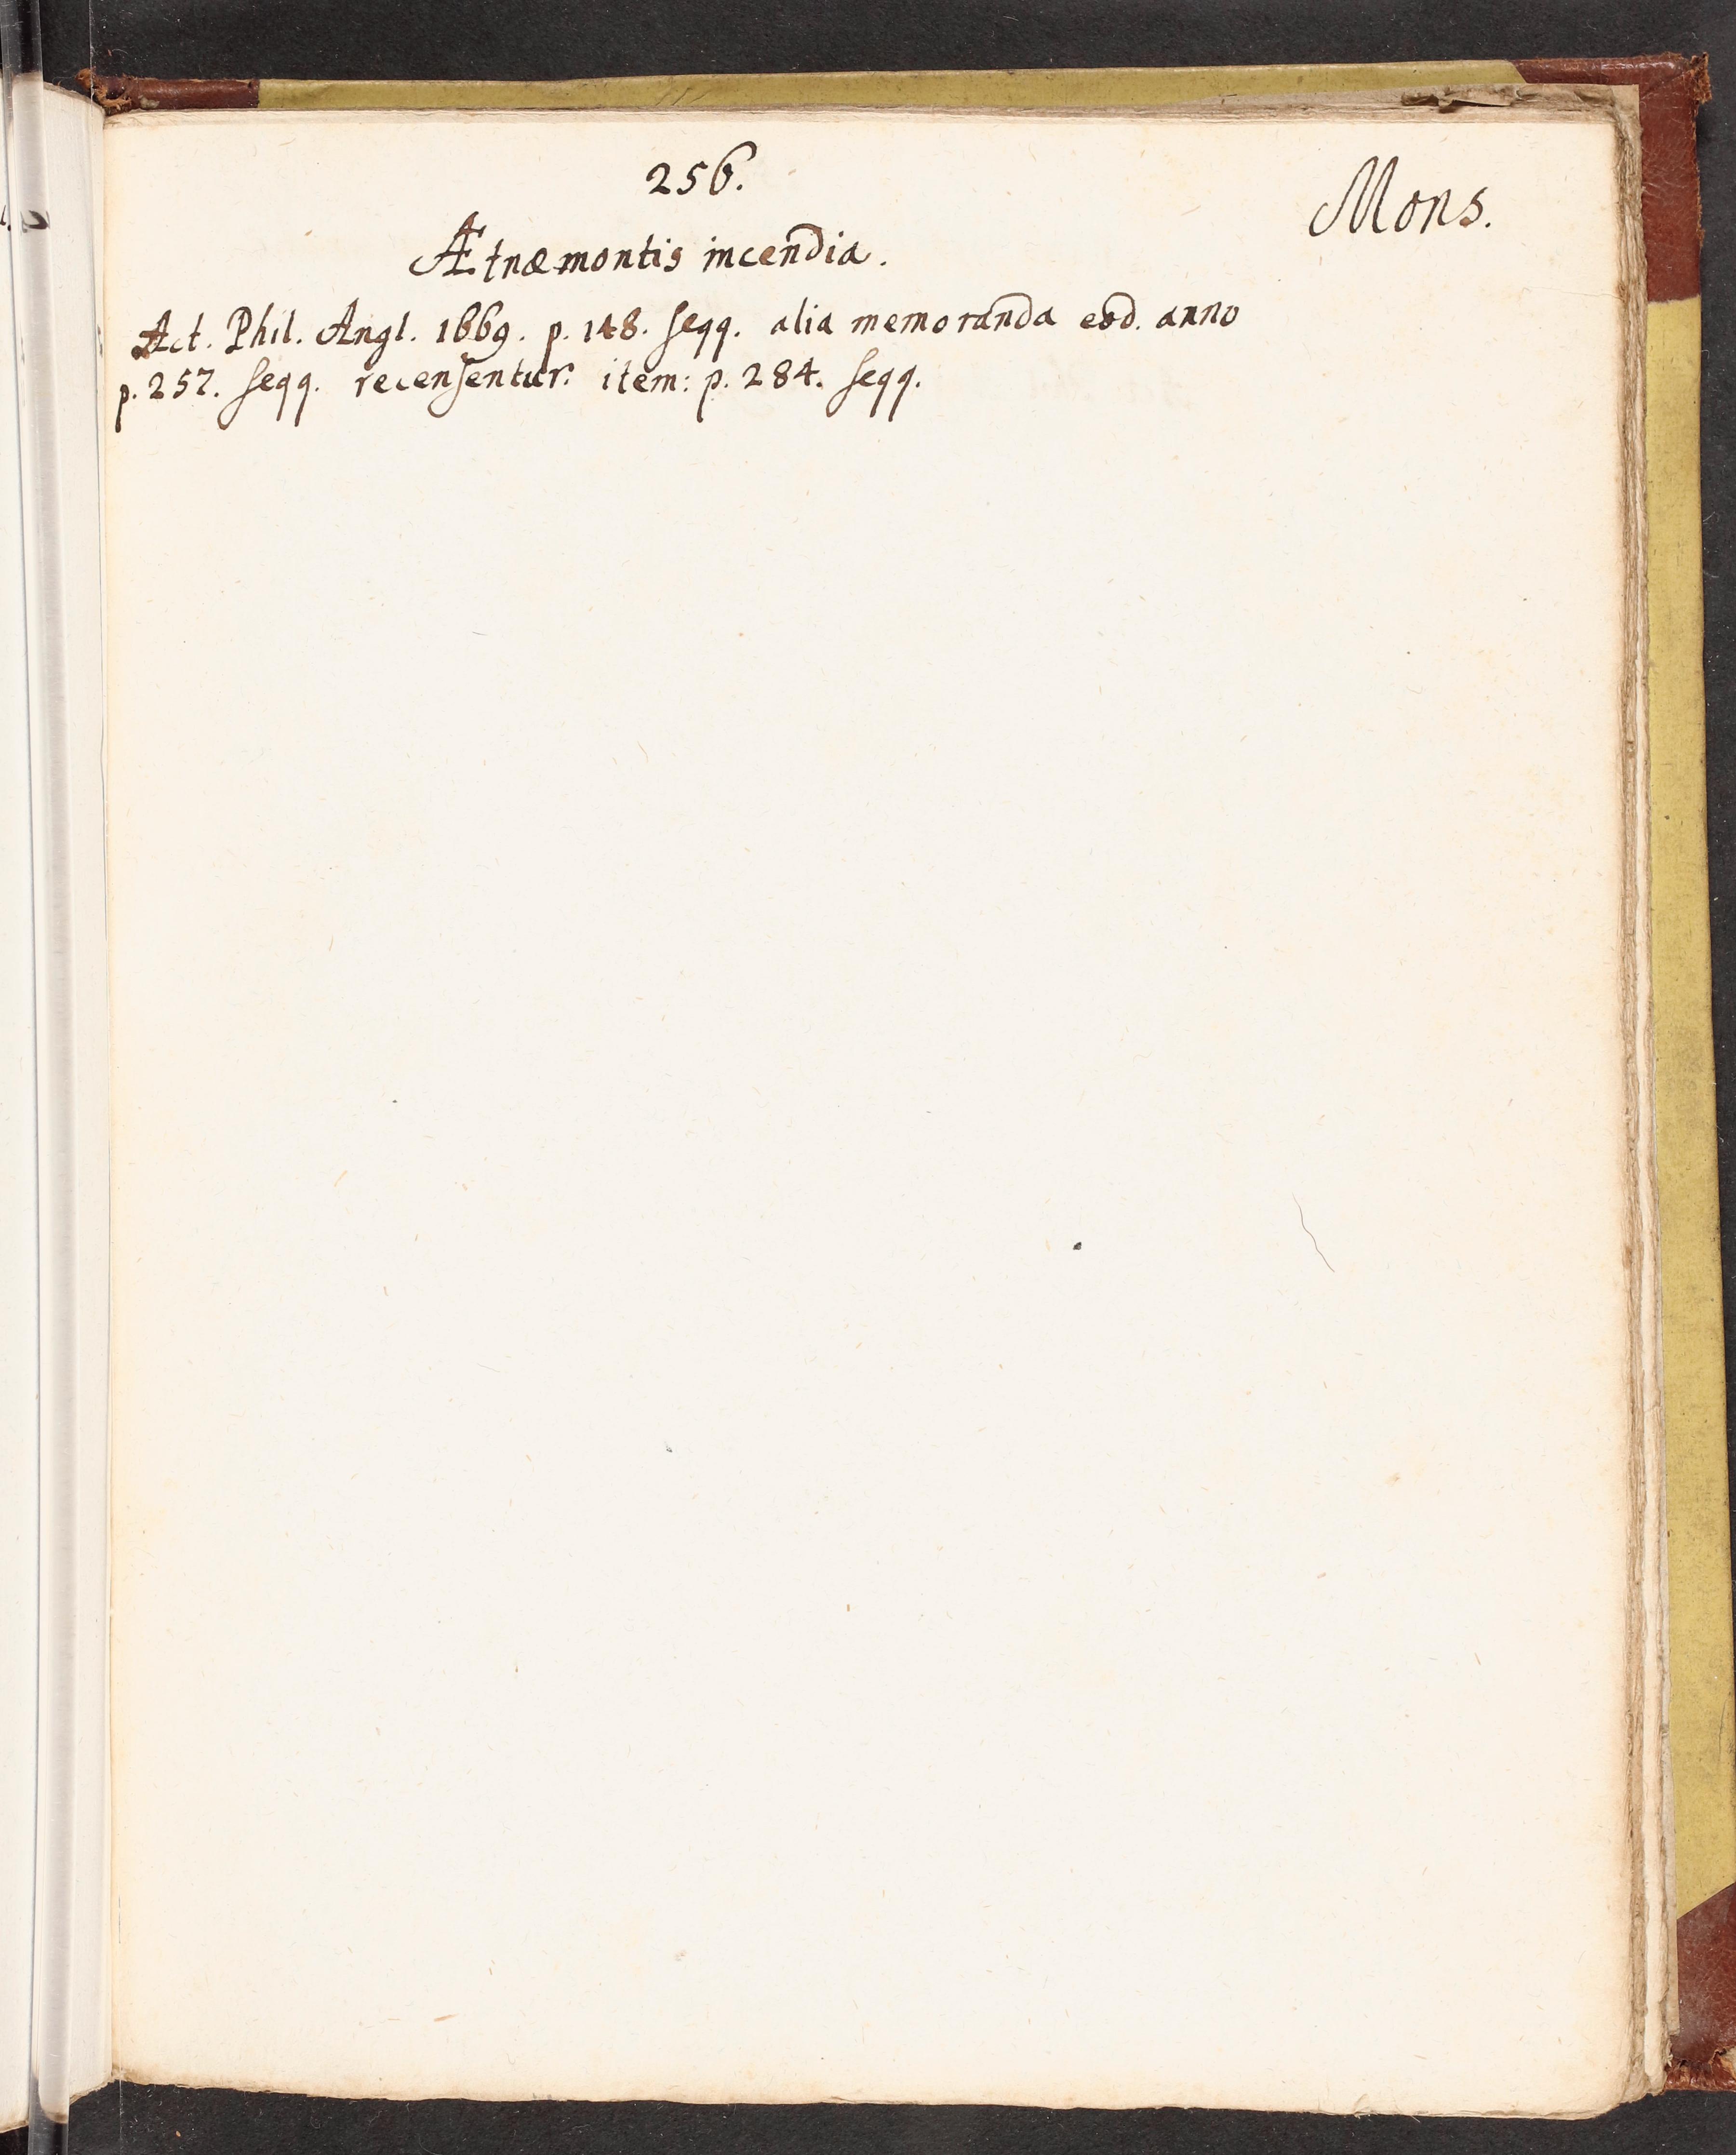 256.
Mons.
Ætnæ montis incendia.
Act. Phil. Angl. 1669. p. 148. seqq. alia memoranda eod. anno
p. 257. seqq. recensentur. item: p. 284. seqq.